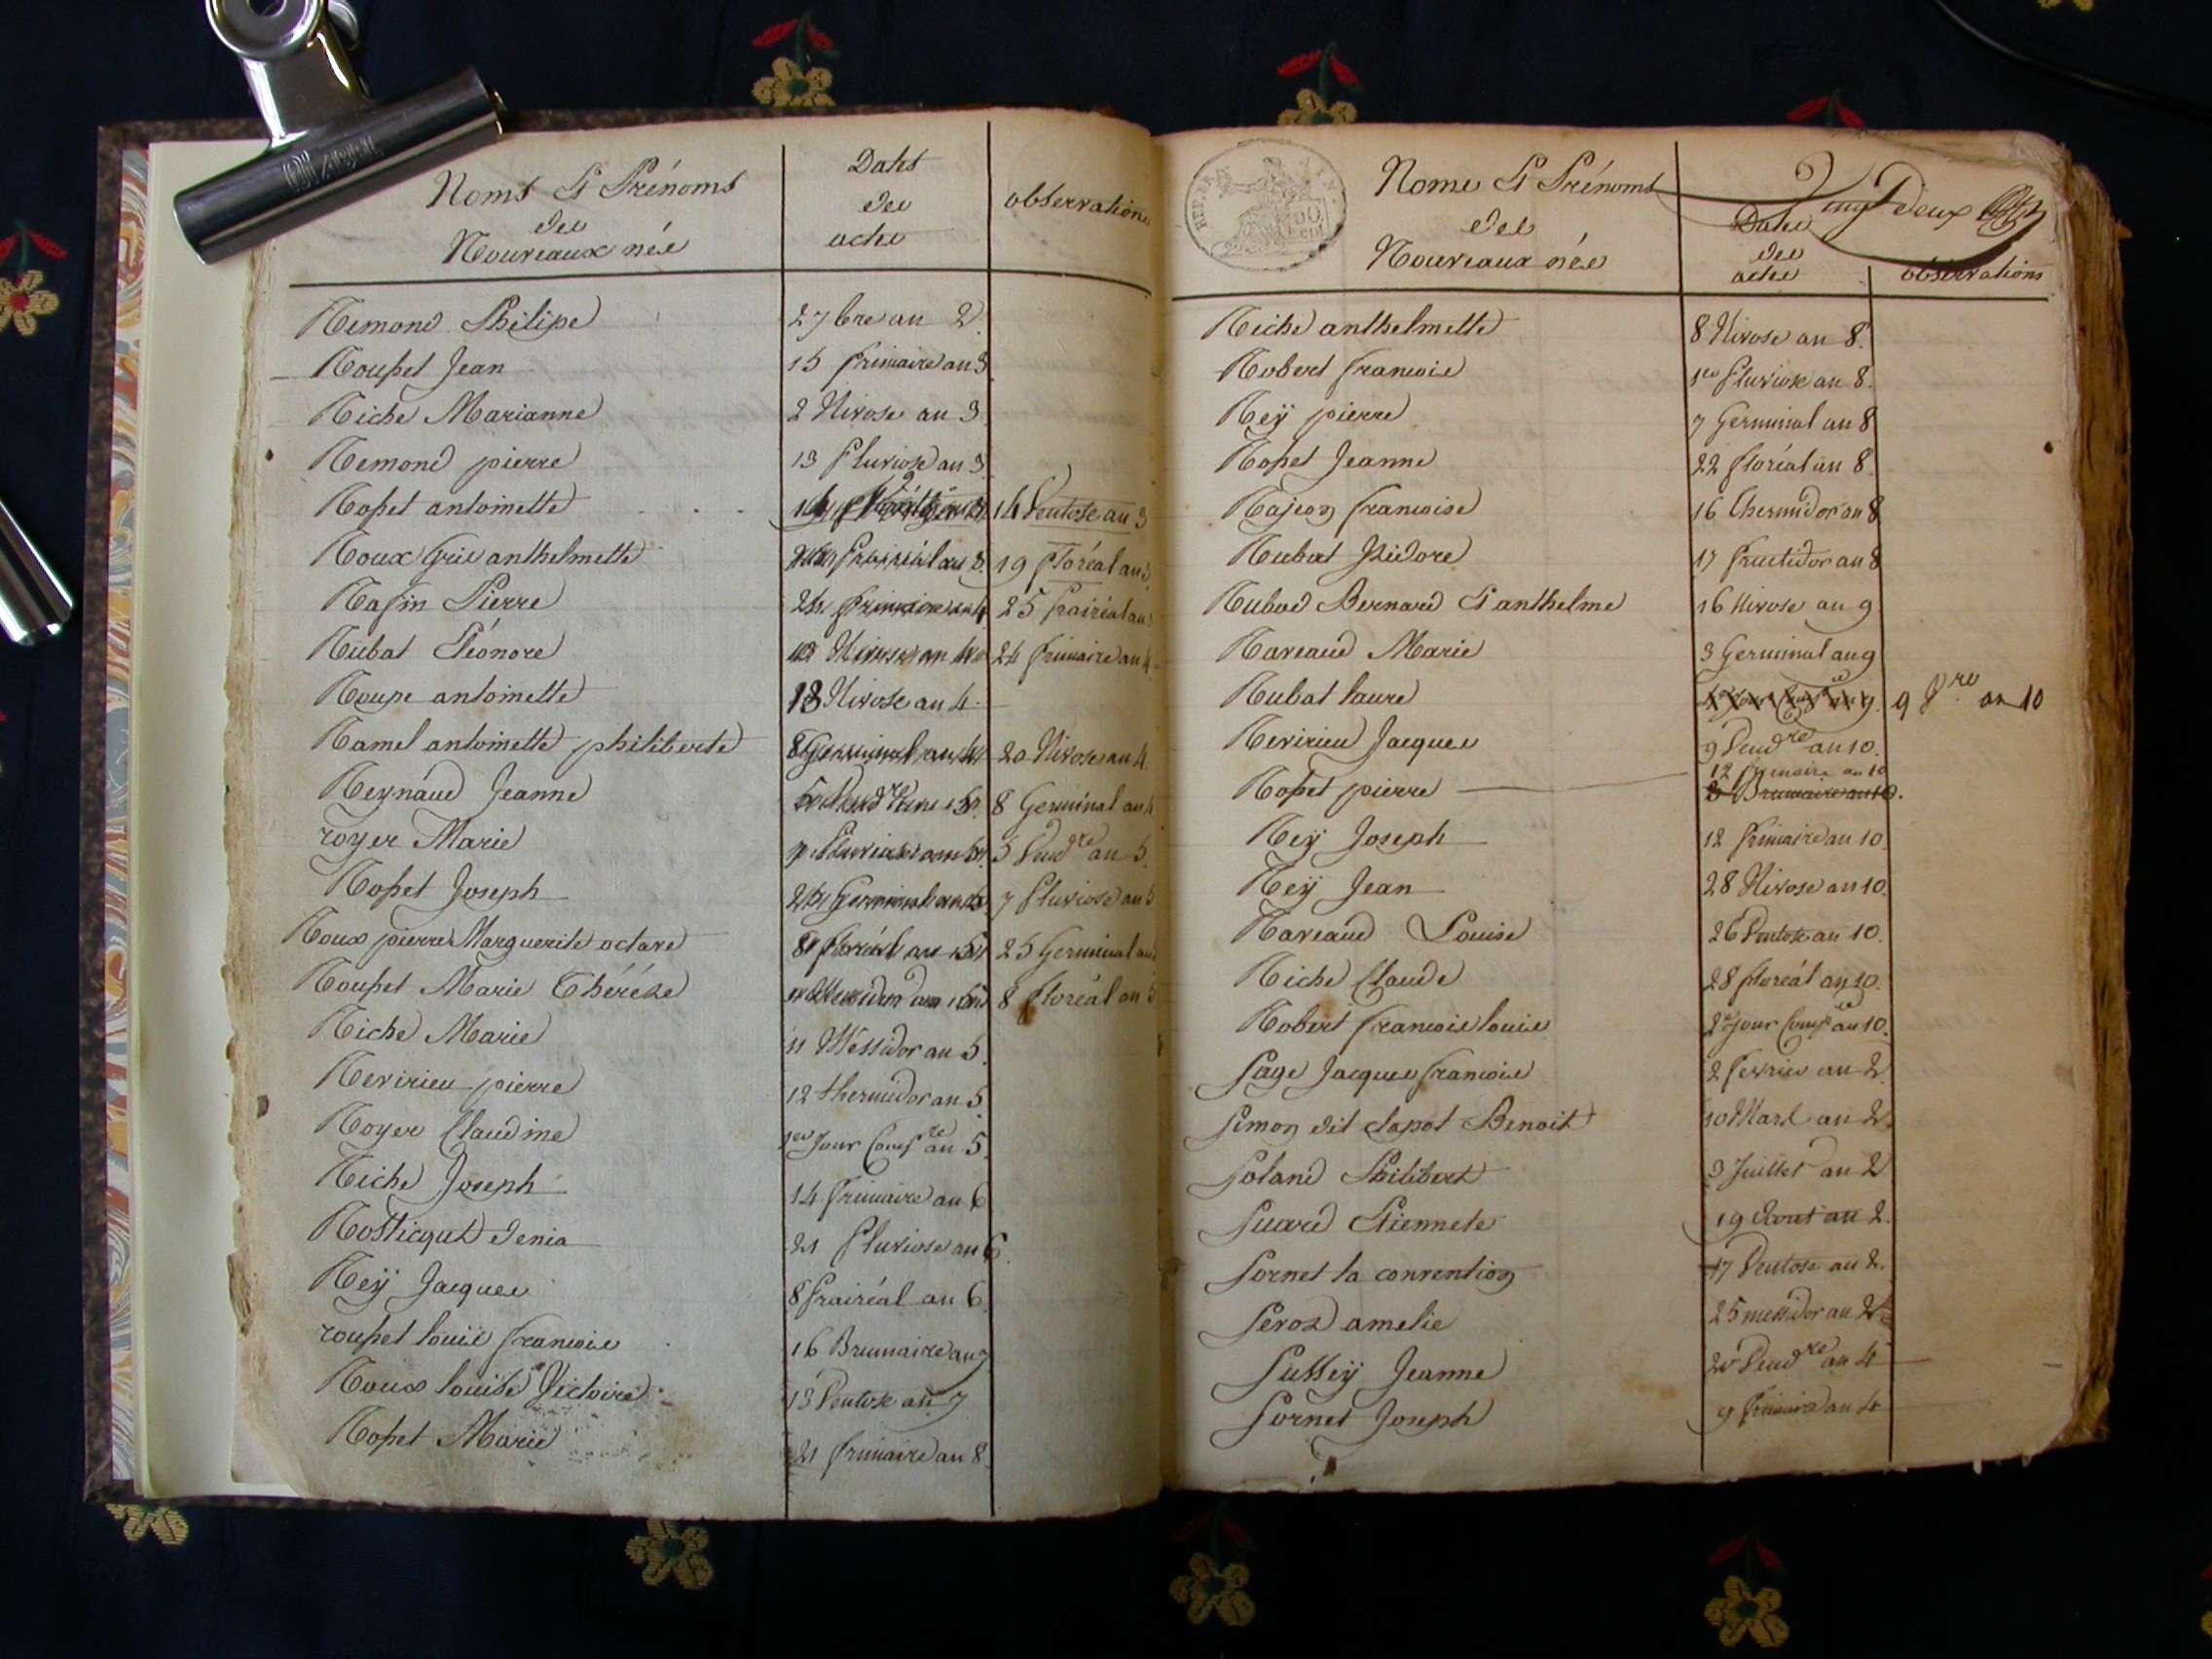 Noms Et Prénoms
des
Nouveaux nés
Dates
des
actes
observations
Remond Philipe 27 bre an 2
Rousset Jean 15 frimaire an 3
Riche Marianne 2 Nivose an 3
Remond pierre 13 Pluviose an 3
Rosset antoinette 14 Ventose an 3
Roux Gris anthelmette 19 Floréal an 3
Rassin Pierre 25 Prairéal an
Rubat Léonore 24 frimaire an 4
Roupe antoinette 18 Nivose an 4
Ramel antoinette philiberte 20 Nivose an 4
Reynaud Jeanne 8 Germinal an 4
royer Marie 5 Vend.re an 5
Rosset Joseph 7 Pluviose an 5
Roux pierre Marguerite octave 25 Germinal an
Rousset Marie Thérése 8 floréal an 5
Riche Marie 11 Messidor an 5
Revirieu pierre 12 thermidor an 5
Royer Claudine 1er Jour Comp.re an 5
Riche Joseph 14 frimaire an 6
Rosticqut denia 21 Pluviose an 6
Reÿ Jacques 8 Prairéal an 6
rousset louis francois 16 Brumaire an 7
Roux louise Victoire 13 Ventose an 7
Rosset Marie 21 frimaire an 8
REP. FRA.
50
Cen
Noms Et Prénoms
des
Nouveaux nés
vingt Deux
Dates
des
actes
observations
Riche anthelmette 8 Nivose an 8
Robert francois 1er Pluviose an 8
Reÿ pierre 7 Germinal an 8
Rosset Jeanne 22 floréal an 8
Rajeon francoise 16 thermidor an 8
Rubat Isidore 17 fructidor an 8
Rubod Bernard Et anthelme 16 Nivose an 9
Raveaud Marie 3 Germinal an 9
Rubat laure 9 an 10
Revirieu Jacques 9 Vend.re an 10
Rosset pierre 12 frimaire an 10
3 Brumaire an 10
Reÿ Joseph 12 frimaire an 10
Reÿ Jean 28 Nivose an 10
Raveaud Louise 26 Ventose an 10
Riche Claude 28 floréal an 10
Robert francois louis 2e Jour Comp.re an 10
Sage Jacques francois 2 fevrier an 2
Simon dit clapot Benoit 10 Mars an 2
Soland Philibert 3 Juillet an 2
Suard Etiennete 19 Aout an 2
Sornet la convention 17 Ventose an 2
Seroz amelie 25 messidor an 2
Sutteÿ Jeanne 20 Vend.re an 4
Sornet Joseph 9 frimaire an 4